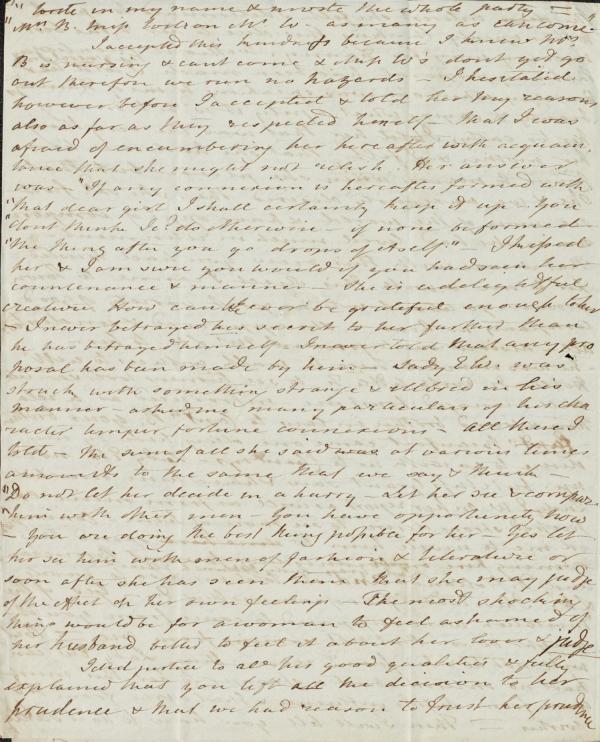 " write in my name & invite the whole party –
" Mrs B. Miss Wilson Mr W as many as can come."
I accepted this kindness because I knew Mrs
B is nursing & can't come & Miss W's don't yet go
out therefore we run no hazards – I hesitated
however before I accepted & told her my reasons
also as far as they respected herself – that I was
afraid of encumbering her hereafter with acquain
tance that she might not relish. Her answer
was – "If any connexion is hereafter formed with
"that dear girl I shall certainly keep it up – You
"don't think I cd do otherwise – if none be formed –
"the thing after you go drops of itself." – I kissed
her & I am sure you would if you had seen her
countenance & manner – She is a delightful
creature How can we ever be grateful enough to her
– I never betrayed his secret to her further than
he has betrayed himself – I never told that any pro
posal has been made by him – Lady E W. was
struck with something strange & altered in his
manner – asked me many particulars of his cha
racter temper fortune connexions – all these I
told – The sum of all she said was at various times
amounts to the same that we say & think –
"Do not let her decide in a hurry – Let her see & compare
"him with other men – You have opportunity now
– You are doing the best thing possible for her – Yes let
her see him with men of fashion & literature or
soon after she has seen them that she may judge
of the effect on her own feelings – The most shocking
thing would be for a woman to feel ashamed of
her husband better to feel it about her lover & judge
I did justice to all his good qualities & fully
explained that you left all the decision to her
prudence & that we had reason to trust her prudence